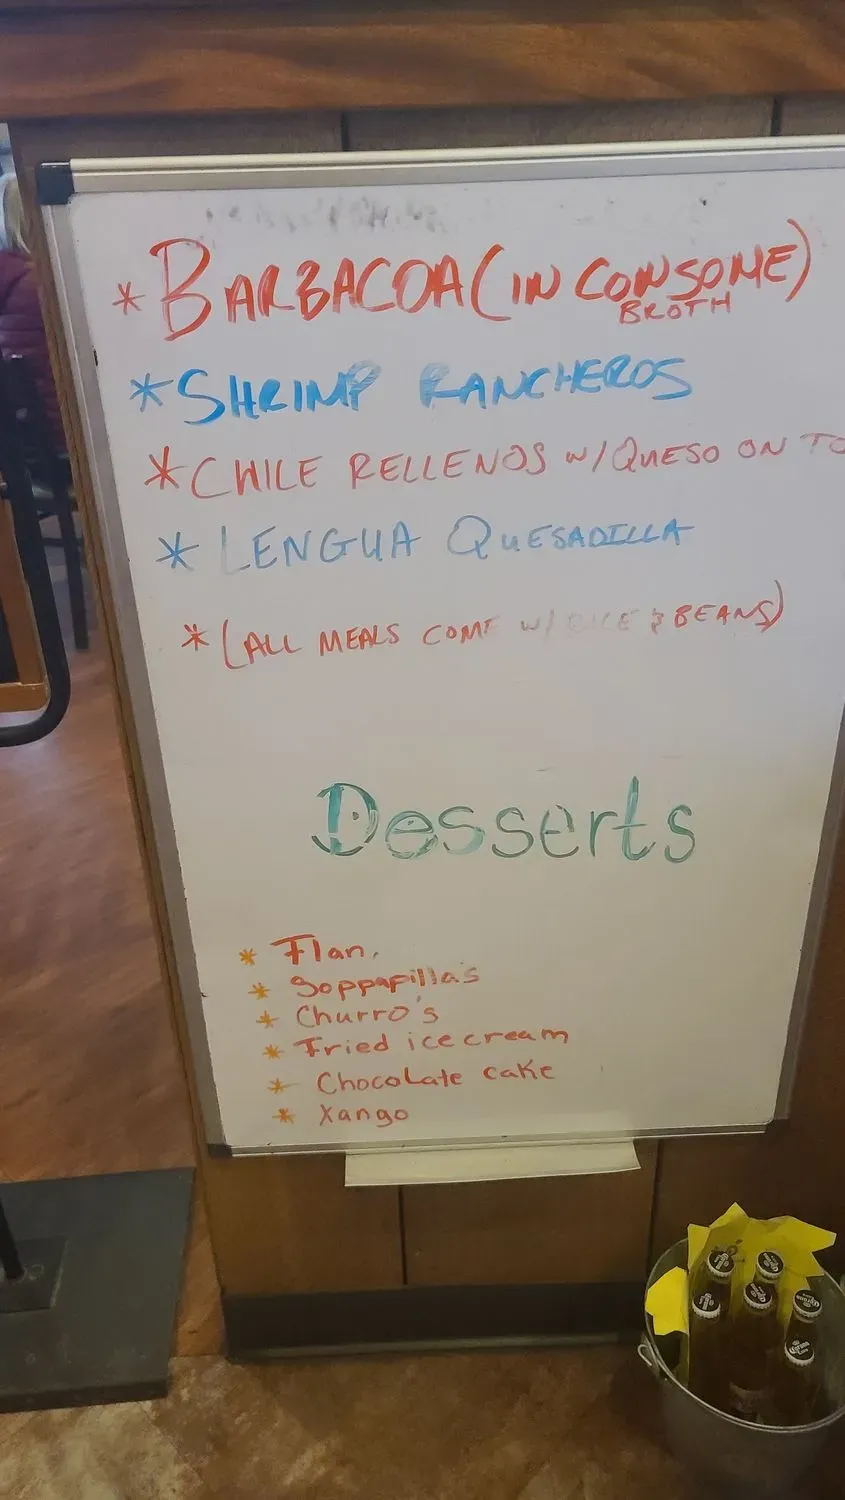 * BARBACOA (IN CONSOME)
BROTH
* SHRIMP RANCHEROS
* CHILE RELLENOS W/QUESO ON TO
* LENGUA QUESADILLA
* (ALL MEALS COME W/ RICE & BEANS)
Desserts
* Flan.
* Soppapilla's
* Churro's
* Fried ice cream
* Chocolate cake
* Xango
Corona